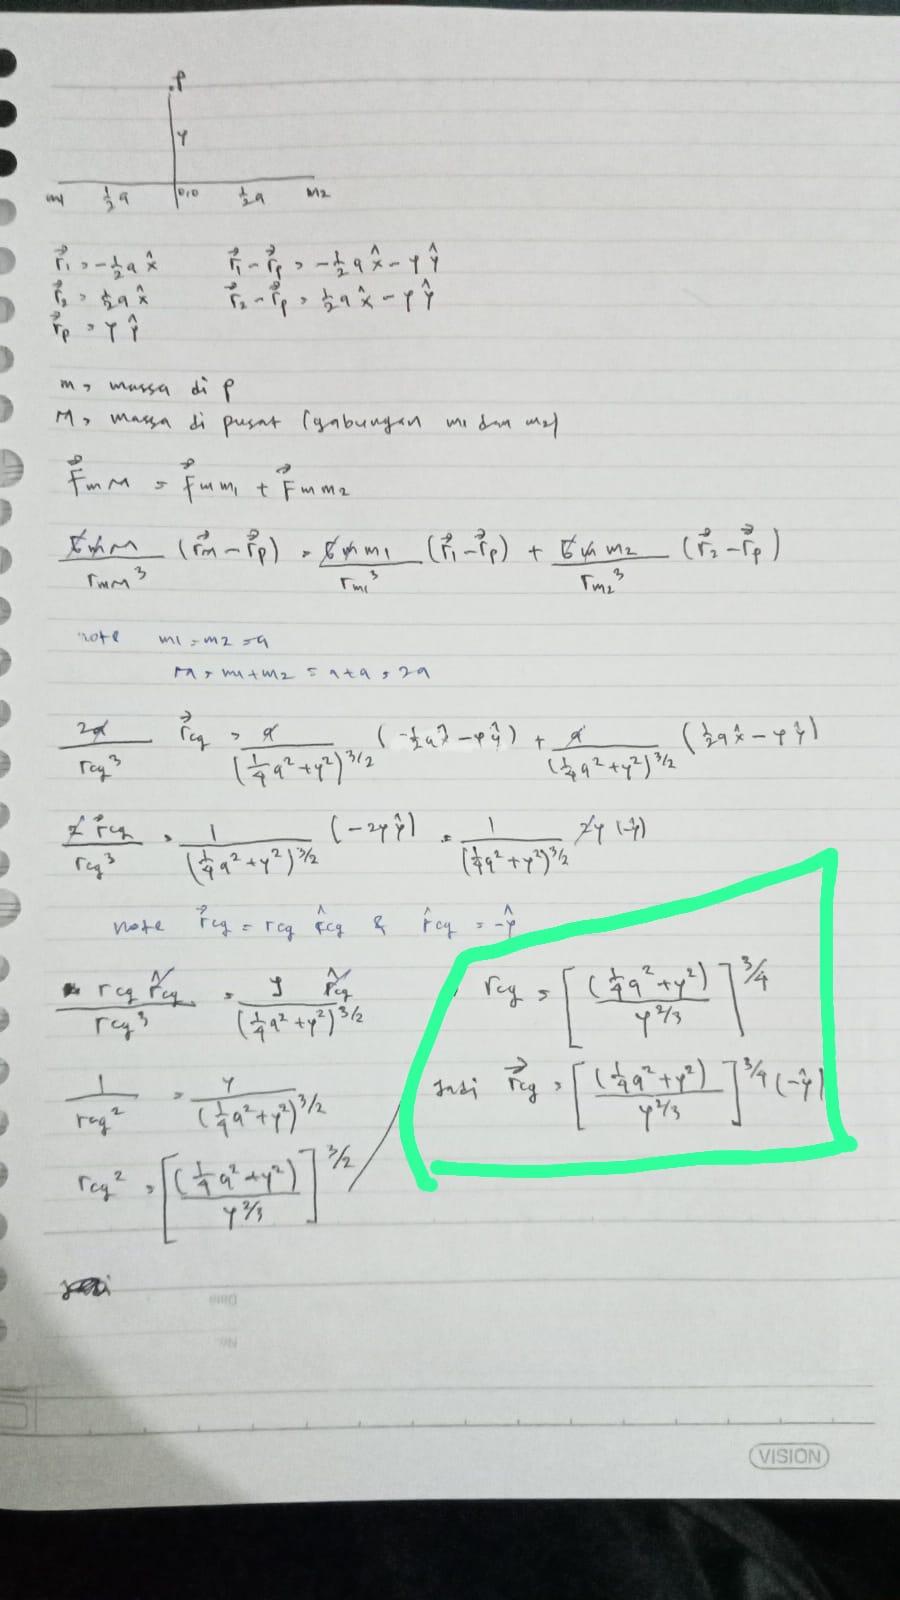 .P
y
m1 ½a 0,0 ½a m2
r⃗₁ = -½a x̂    r⃗₁ - r⃗p = -½a x̂ - y ŷ
r⃗₂ = ½a x̂    r⃗₂ - r⃗p = ½a x̂ - y ŷ
r⃗p = y ŷ
m = massa di P
M = massa di pusat (gabungan m1 dan m2)
F⃗mM = F⃗mm₁ + F⃗mm₂
GmM/rmM³ (r⃗M - r⃗p) = Gmm₁/rm₁³ (r⃗₁ - r⃗p) + Gmm₂/rm₂³ (r⃗₂ - r⃗p)
note m1 = m2 = a
M = m1 + m2 = a + a = 2a
2a/rcg³ r⃗cg = a/(¼a² + y²)^3/2 (-½a x̂ - y ŷ) + a/(¼a² + y²)^3/2 (½a x̂ - y ŷ)
2 r⃗cg/rcg³ = 1/(¼a² + y²)^3/2 (-2y ŷ) = 1/(¼a² + y²)^3/2 2y (-ŷ)
note r⃗cg = rcg r̂cg & r̂cg = -ŷ
rcg r̂cg/rcg³ = y r̂cg/(¼a² + y²)^3/2
1/rcg² = y/(¼a² + y²)^3/2
rcg² = [(¼a² + y²)/y^2/3]^3/2
rcg = [(¼a² + y²)/y^2/3]^3/4
Jadi r⃗cg = [(¼a² + y²)/y^2/3]^3/4 (-ŷ)
VISION